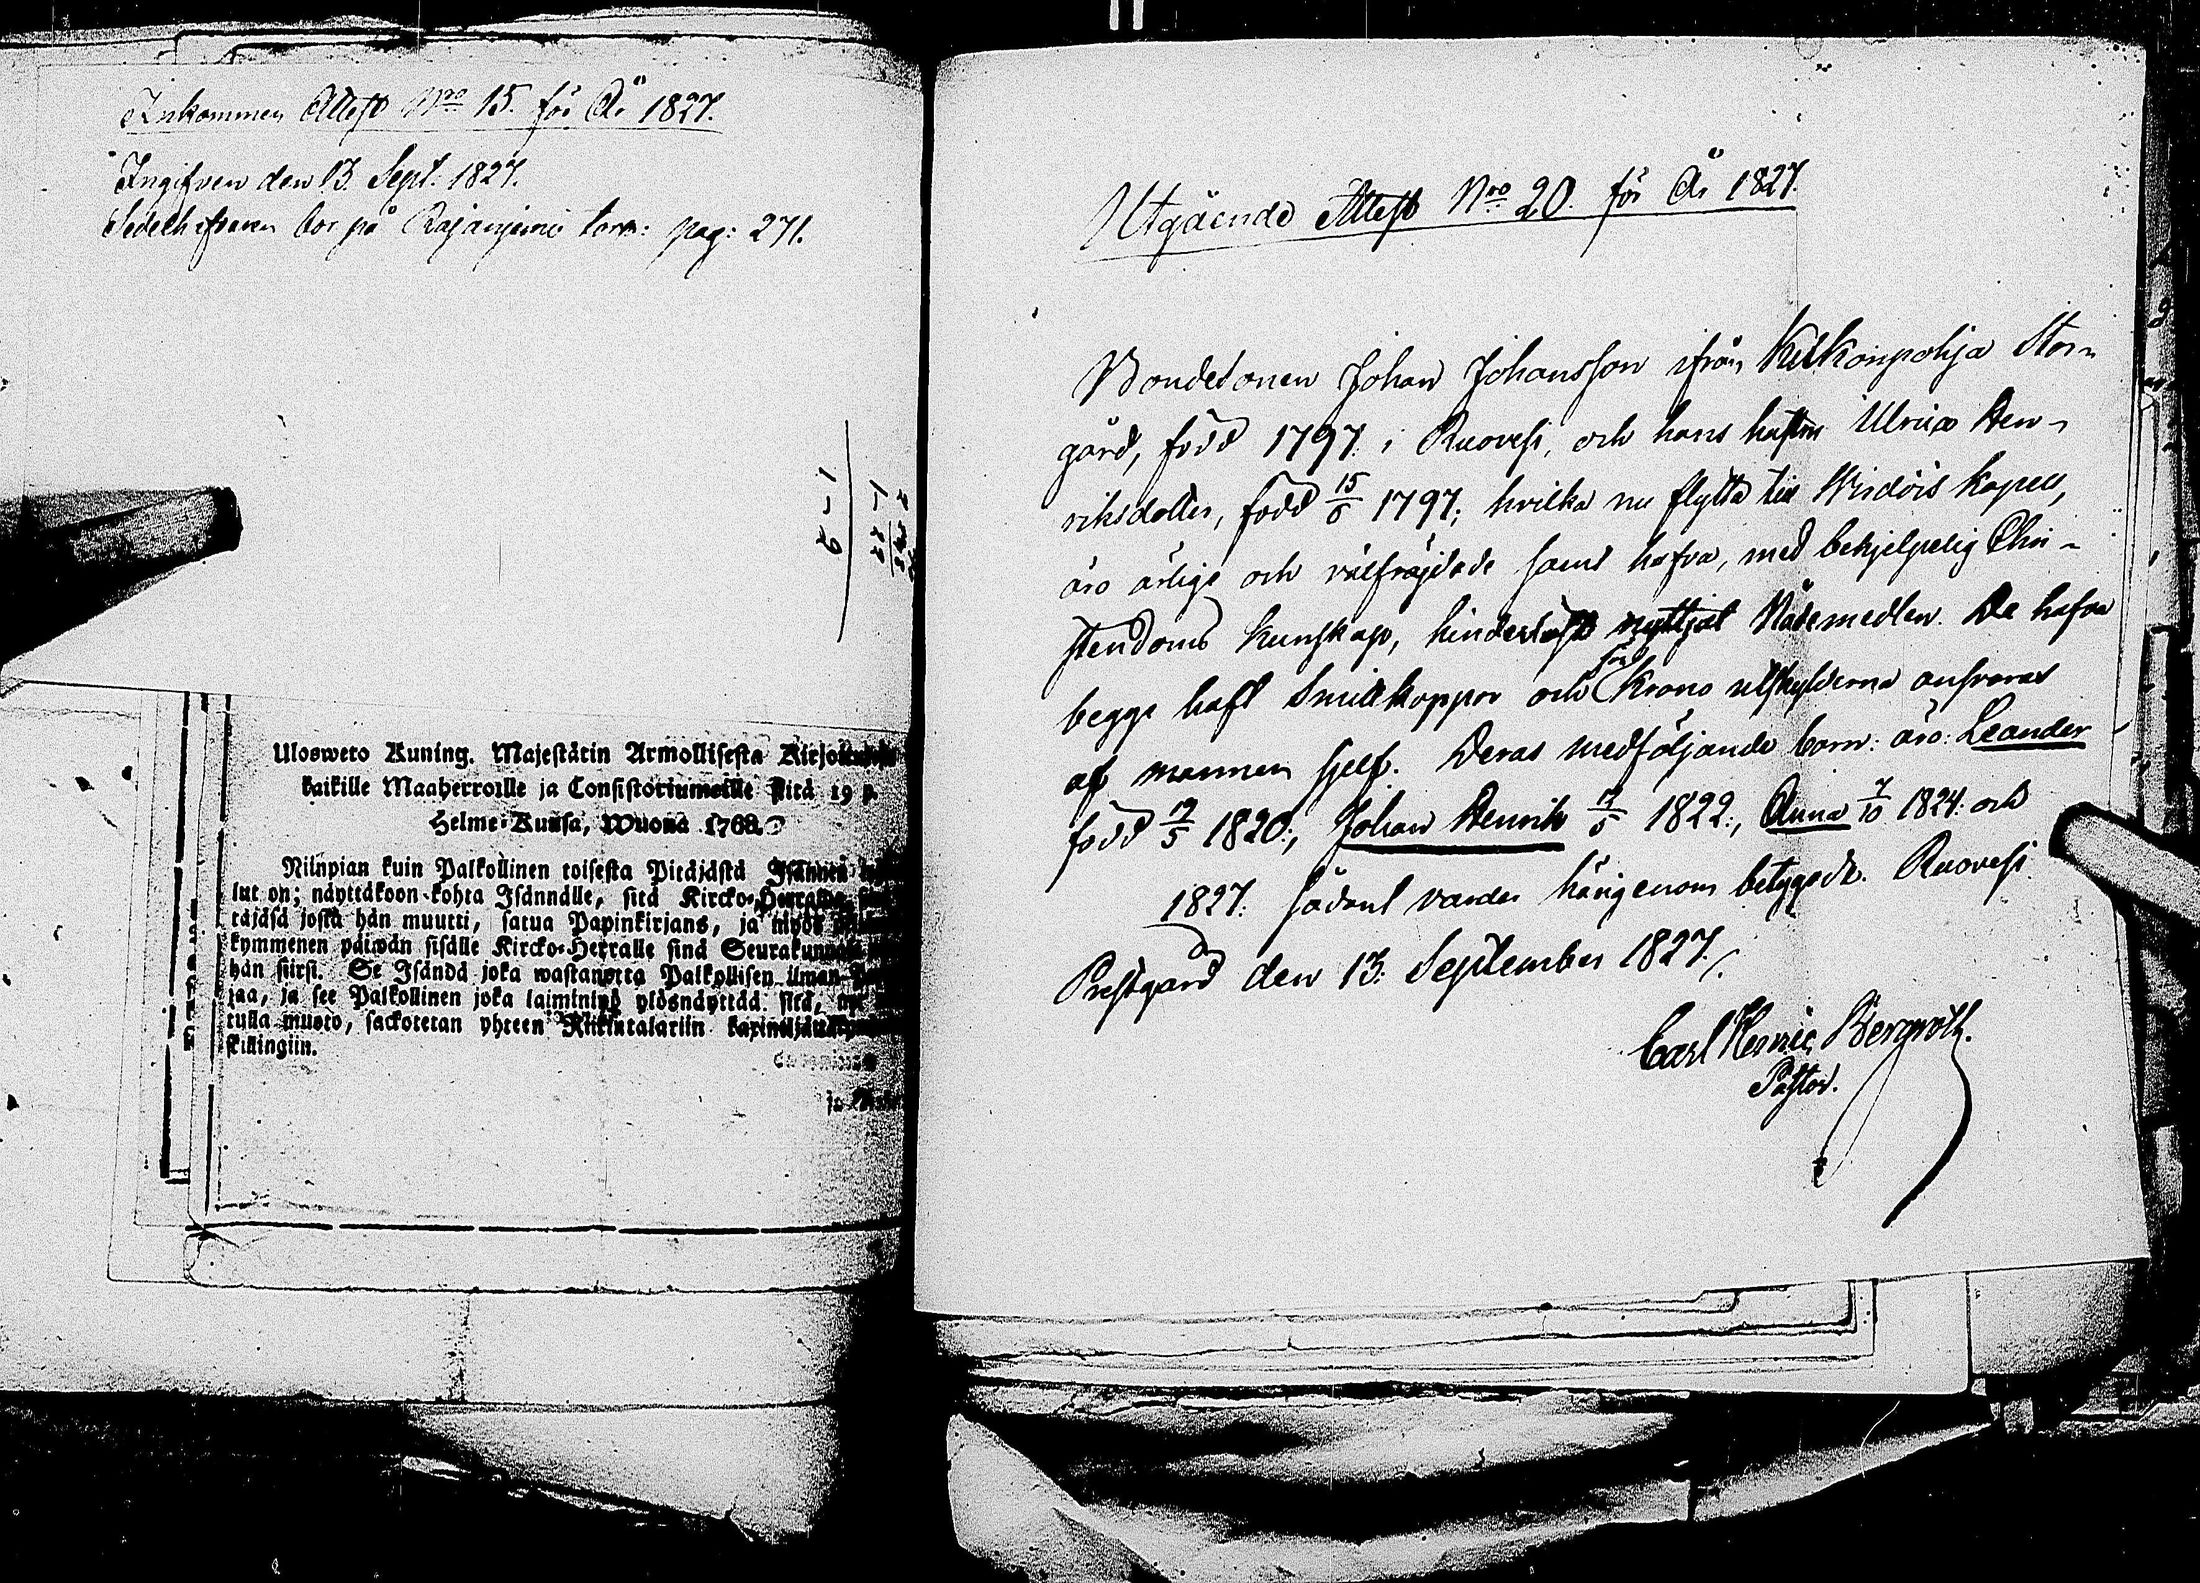 Inkommen Attest Nro 15. för År 1827.
Ingifven den 13. Sept. 1827.
bor på Rajaniemi torp: pag: 271.
Ulosweto Kuning. Majestätin Armollisesta Kirjoituxesta
kaikille Maaherroille ja Consistoriumeille sitä 19 p.
Helme-Kuusa, Wuona 1768.
Niinpian kuin Palkollinen toisesta Pitäjästä Isännen
lut on; näyttäkoon kohta Isännälle, sitä Kircko-Herralda
täjäsä josta hän muutti, saatua Papinkirjans, ja myös
kymmenen päiwän sisälle Kircko-Herralle sinä Seurakunnasa
hän siirsi. Se Isändä joka wastanotta Palkollisen ilman
jaa, ja see Palkollinen joka laiminlyö ylösnäyttää sitä,
tulla muoto, sackotetan yhteen Rikintalariin
skillingiin.
Utgående Attest Nro 20. för År 1827.
Bondesonen Johan Johansson ifrån Kilkonpohja Stor-
gård, född 1797. i Ruovesi, och hans hustru Ulrica Hen-
riksdotter, född 15/6 1797; hvilka nu flytta till Wirdois Kapell,
äro ärlige och välfrejdade samt hafva, med behjelpelig Chri-
stendoms kunskap, hinderlöst nyttjat Nådemedlen. De hafva
begge haft Smittkoppor och för Krono utskylderna ansvaras
af mannen sjelf. Deras medföljande barn: äro: Leander
född 19/5 1820:, Johan Henrik 7/5 1822:, Anna 7/10 1824: och
1827: Sådant varder härigenom betygadt. Ruovesi
Prestgård den 13. September 1827.
Carl Henric Bergroth.
Pastor.